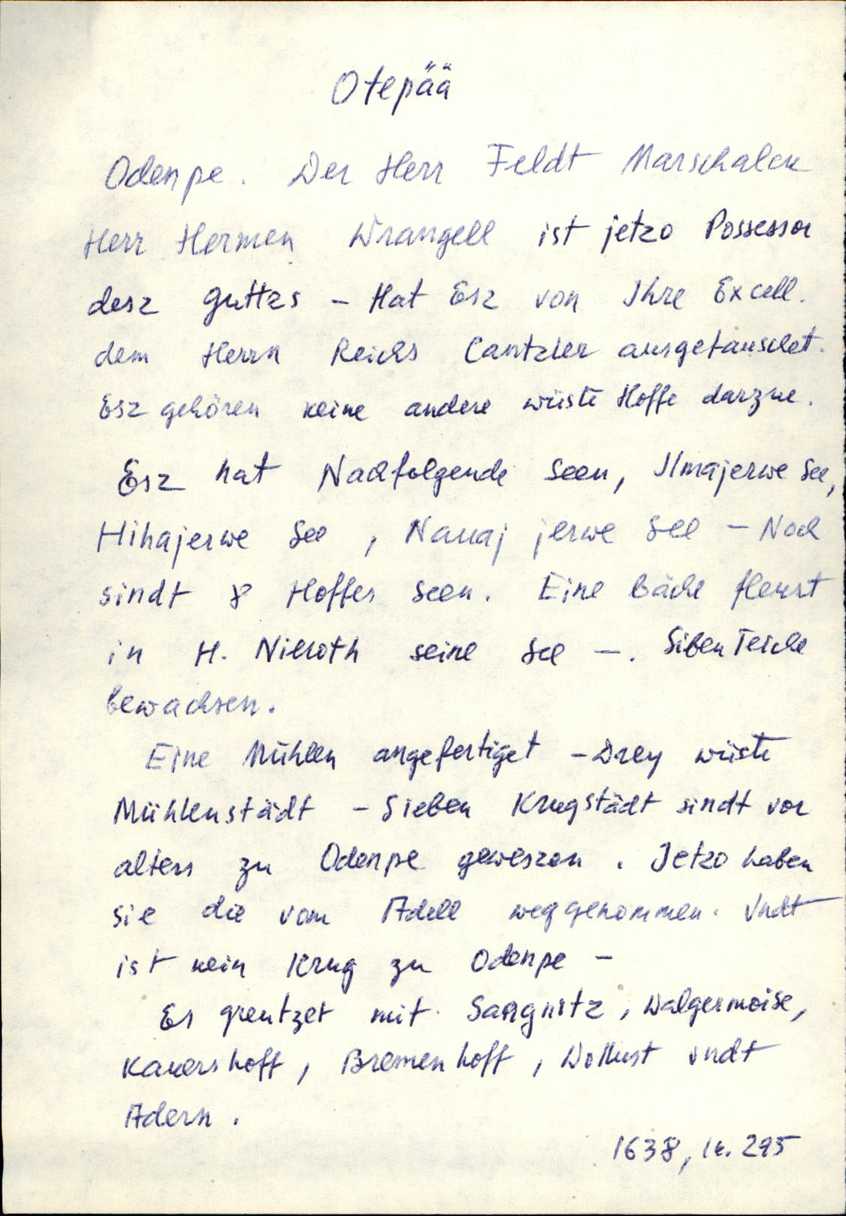 Otepää
Odenpe. Der Herr Feldt Marschalck
Herr Hermen Wrangell ist jetzo Possessor
desz guttzs – Hat Esz von Ihre Excell.
dem Herrn Reichs Cantzler ausgetauschet.
Esz gehören keine andere wüste Hoffe darzue.
Esz hat Nachfolgende Seen, Ilmajerwe See,
Hihajerwe See, jerwe See – Noch
sindt 8 Hoffes Seen. Eine Bäche fleust
in H. Nieroth seine See –. Siben Teiche
bewachsen.
Eine Mühlen angefertiget – Drey wüste
Mühlenstädt – Sieben Krugstädt sindt vor
alters zu Odenpe geweszen. Jetzo haben
sie die vom Adell weggenommen. Vndt
ist kein Krug zu Odenpe –
Es grentzet mit Sangnitz, Walgermoise,
Kawershoff, Bremenhoff, Wollust vndt
Adern.
1638, lk. 295